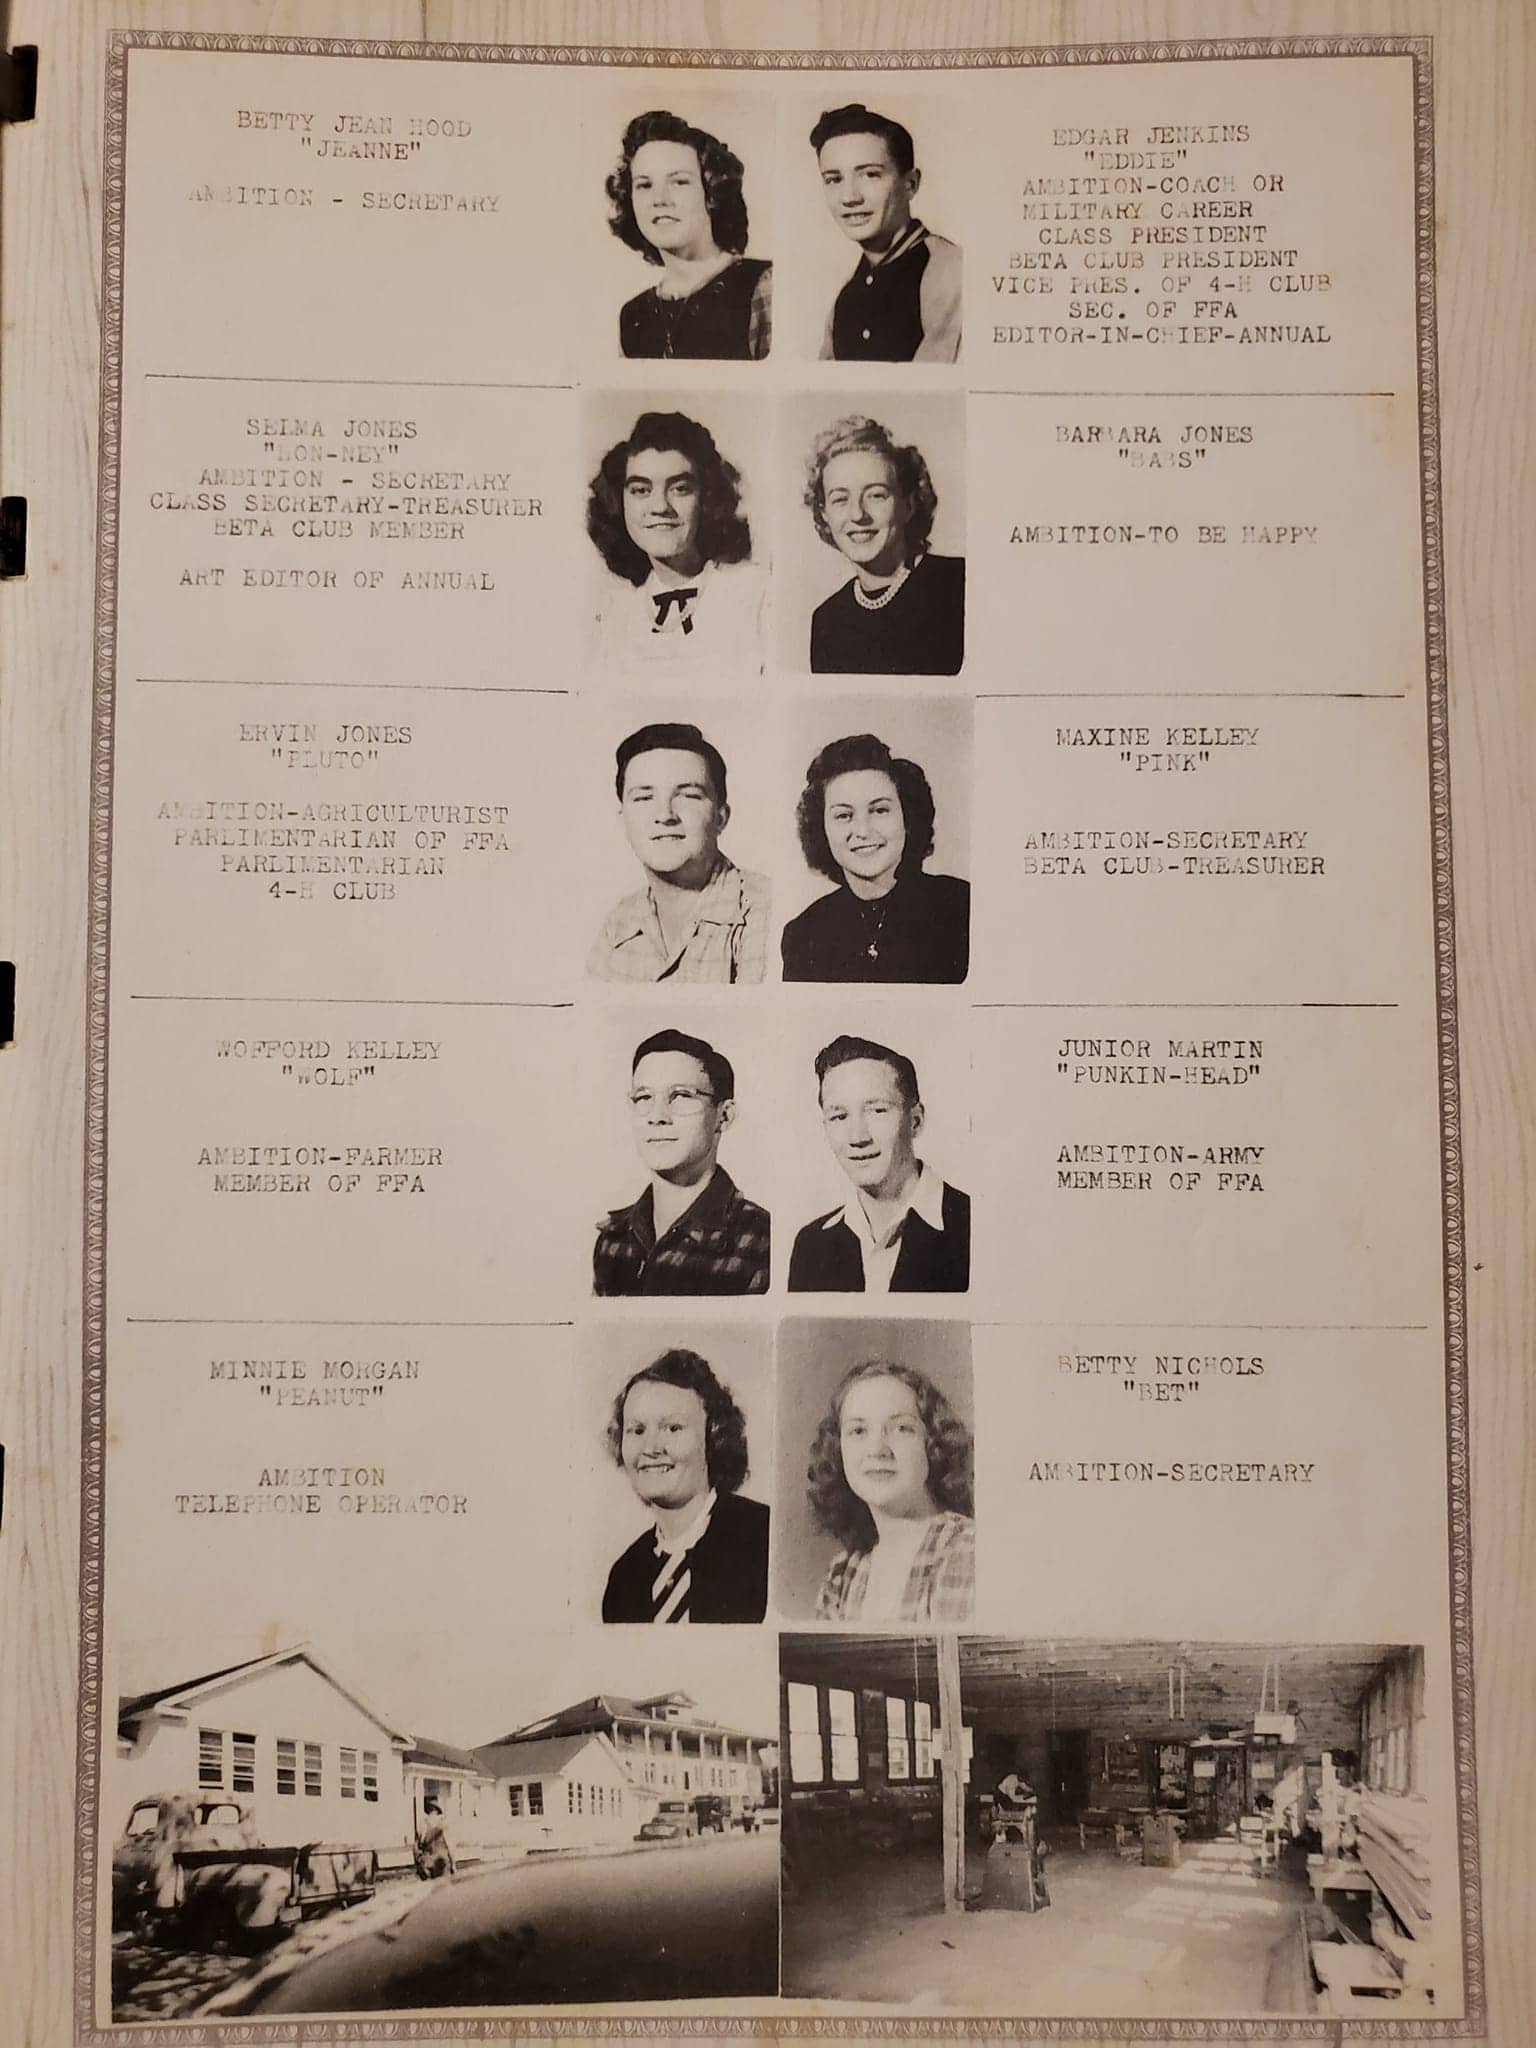 BETTY JEAN HOOD
"JEANNE"
AMBITION - SECRETARY
EDGAR JENKINS
"EDDIE"
AMBITION-COACH OR
MILITARY CAREER
CLASS PRESIDENT
BETA CLUB PRESIDENT
VICE PRES. OF 4-H CLUB
SEC. OF FFA
EDITOR-IN-CHIEF-ANNUAL
SELMA JONES
"HON-NEY"
AMBITION - SECRETARY
CLASS SECRETARY-TREASURER
BETA CLUB MEMBER
ART EDITOR OF ANNUAL
BARBARA JONES
"BABS"
AMBITION-TO BE HAPPY
ERVIN JONES
"PLUTO"
AMBITION-AGRICULTURIST
PARLIMENTARIAN OF FFA
PARLIMENTARIAN
4-H CLUB
MAXINE KELLEY
"PINK"
AMBITION-SECRETARY
BETA CLUB-TREASURER
WOFFORD KELLEY
"WOLF"
AMBITION-FARMER
MEMBER OF FFA
JUNIOR MARTIN
"PUNKIN-HEAD"
AMBITION-ARMY
MEMBER OF FFA
MINNIE MORGAN
"PEANUT"
AMBITION
TELEPHONE OPERATOR
BETTY NICHOLS
"BET"
AMBITION-SECRETARY